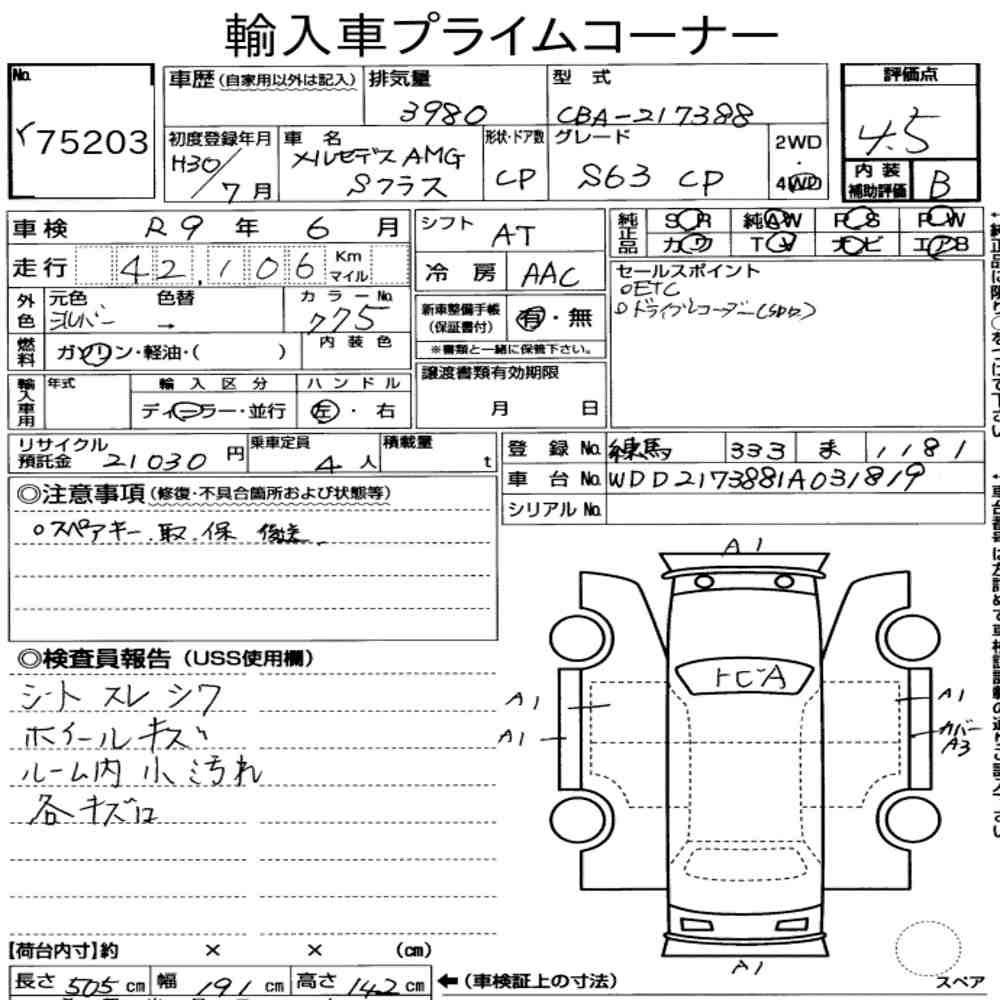 輸入車プライムコーナー
No. 75203
車歴 (自家用以外は記入)
排気量 3980
型式 CBA-217388
評価点 4.5
初度登録年月 H30/7月
車名 メルセデスAMG Sクラス
形状・ドア数 CP
グレード S63 CP
2WD・4WD
内装補助評価 B
車検 R9年6月
シフト AT
純正品 SR 純AW PS PW
カワ TV ナビ エアB
走行 42,106 Km マイル
冷房 AAC
セールスポイント
○ETC
○ドライブレコーダー(SDカ)
外色 元色 シルバー 色替 → カラーNo. 775
新車整備手帳(保証書付) 有・無
※書類と一緒に保管下さい。
燃料 ガソリン・軽油・( ) 内装色
譲渡書類有効期限 月 日
輸入車用 年式 輸入区分 ディーラー・並行 ハンドル 左・右
リサイクル預託金 21030円
乗車定員 4人
積載量 t
登録No. 練馬 333 ま 1181
車台No. WDD2173881A031819
シリアルNo.
◎注意事項(修復・不具合箇所および状態等)
○スペアキー、取、保 後送
◎検査員報告(USS使用欄)
シート スレ シワ
ホイールキズ
ルーム内 小汚れ
各キズロ
A1
トビA
A1
A1
A1
カバーA3
A1
スペア
【荷台内寸】約 × × (cm)
長さ 505 cm 幅 191 cm 高さ 142 cm
←(車検証上の寸法)